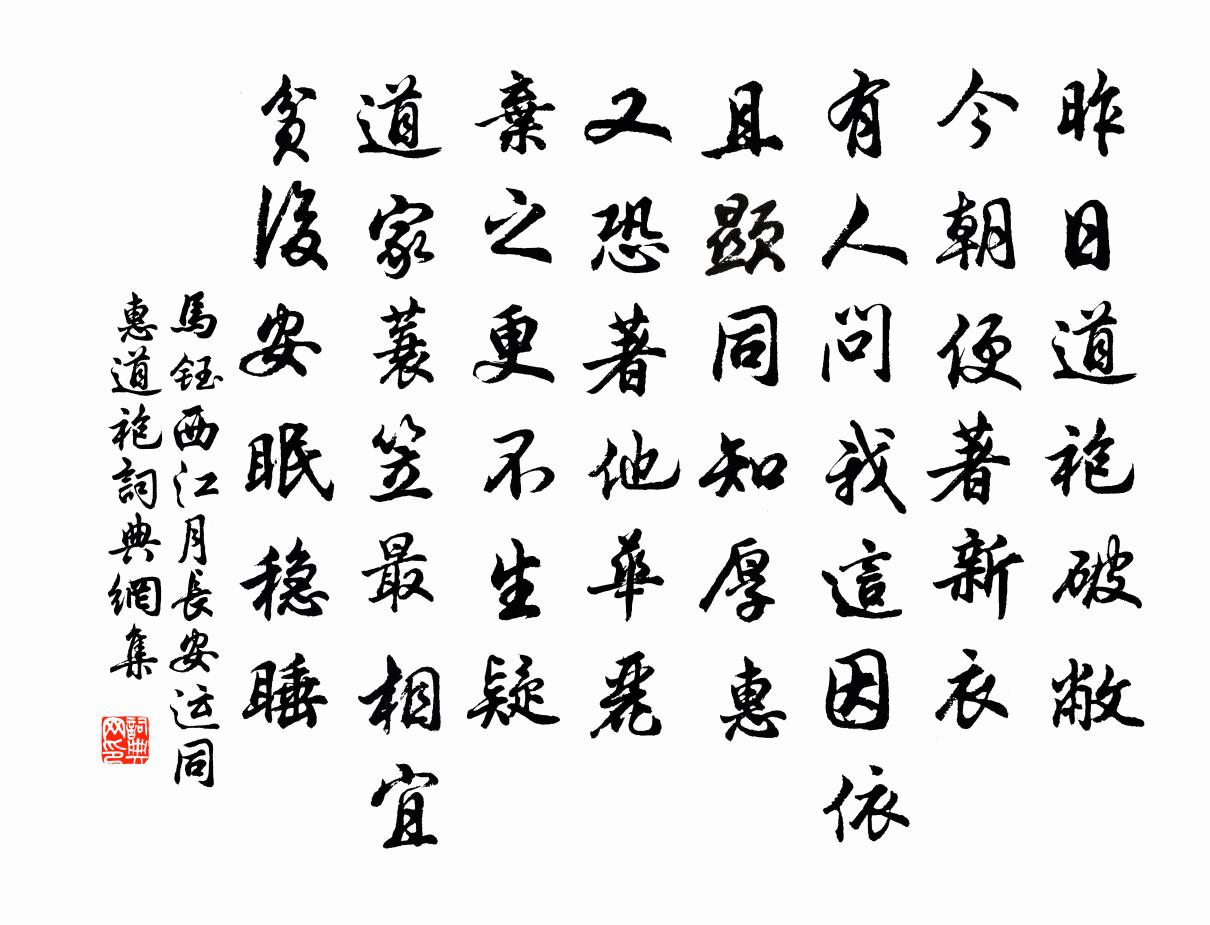 昨日道袍破敝
今朝便著新衣
有人問我這因依
且顯同知厚惠
又恐著他華麗
棄之更不生疑
道家蓑笠最相宜
貧後安眠穩睡
馬鈺西江月長安运同
惠道袍詞典網集
詞典网印